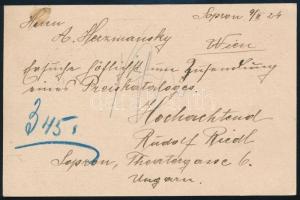 Sopron 9/II 24
Herrn
A. Herzmansky
Wien
Ersuche höflichst um Zusendung
eines Preiskataloges.
345.
Hochachtend
Rudolf Riedl
Sopron, Theatergasse 6.
Ungarn.